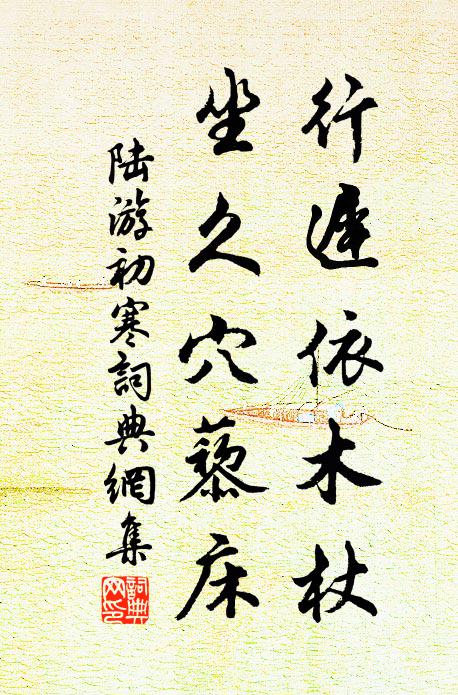 行遲依木杖
坐久穴藜床
陸游初寒詞典網集
詞典
网印